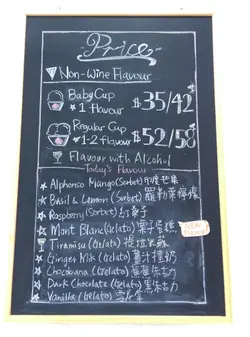 Price
Non-Wine Flavour
Baby Cup
1 flavour
$35/42
Regular Cup
1-2 flavour
$52/58
Flavour with Alcohol
Today's Flavour
Alphonso Mango (Sorbet) 印度芒果
Basil & Lemon (Sorbet) 羅勒葉檸檬
Raspberry (Sorbet) 紅桑子
Mont Blanc (Gelato) 栗子蛋糕
NEW
Tiramisu (Gelato) 提拉米蘇
Ginger Milk (Gelato) 薑汁撞奶
Chocobana (Gelato) 香蕉朱古力
Dark Chocolate (Gelato) 黑朱古力
Vanilla (Gelato) 雲尼拿